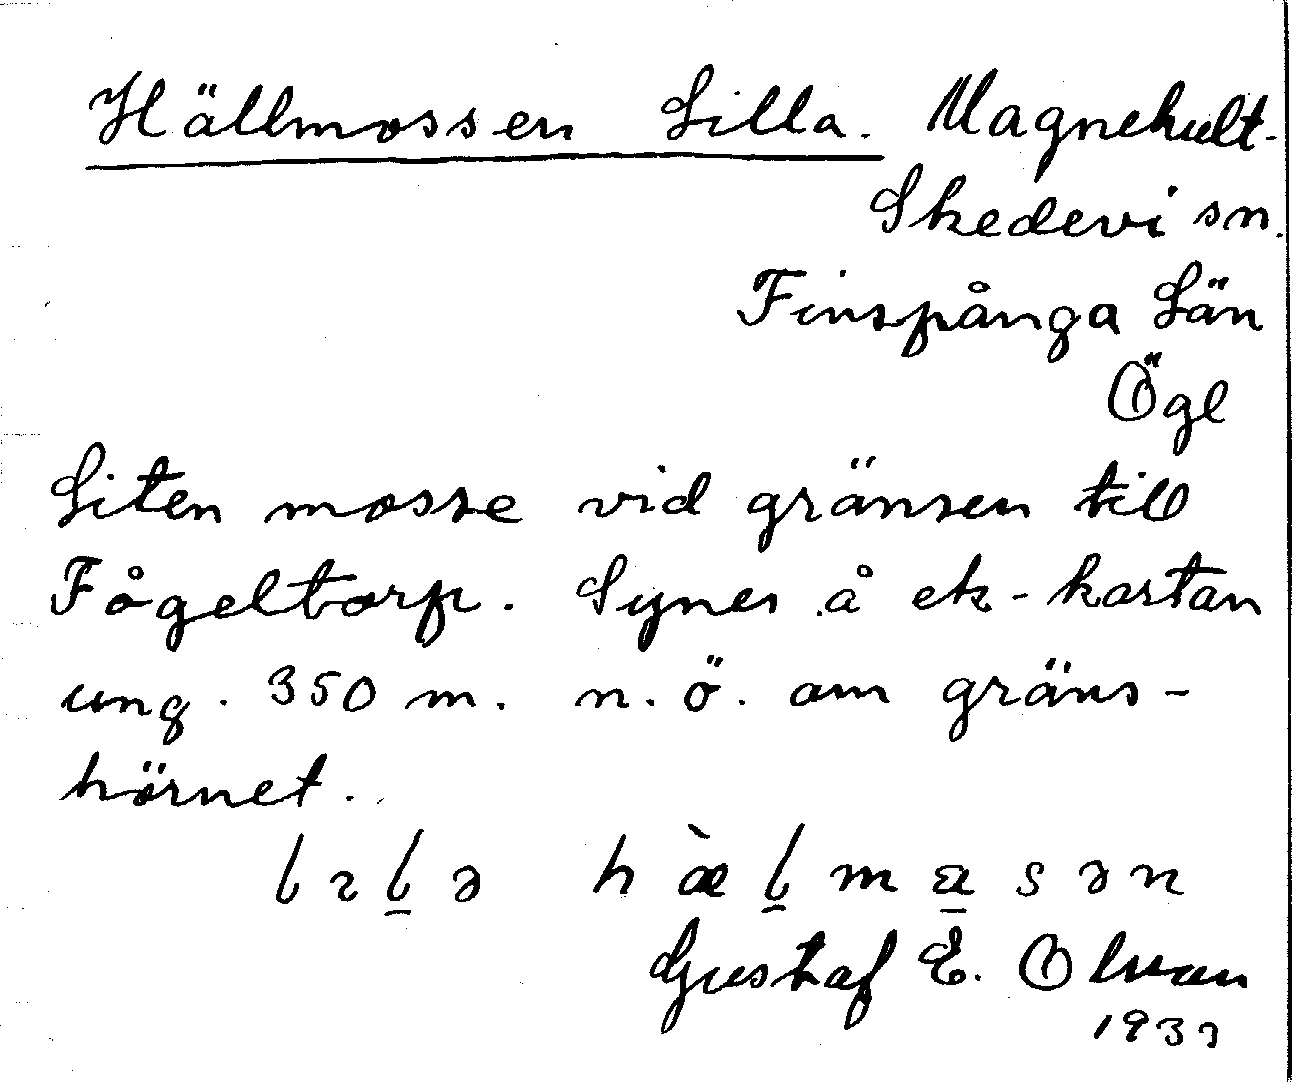 Hällmossen Lilla. Magnehult.
Skedevi sn.
Finspånga Län
Ögl
Liten mosse vid gränsen till
Fågeltorp. Synes å ek-kartan
ung. 350 m. n.ö. om gräns-
hörnet.
Gustaf E. Olson